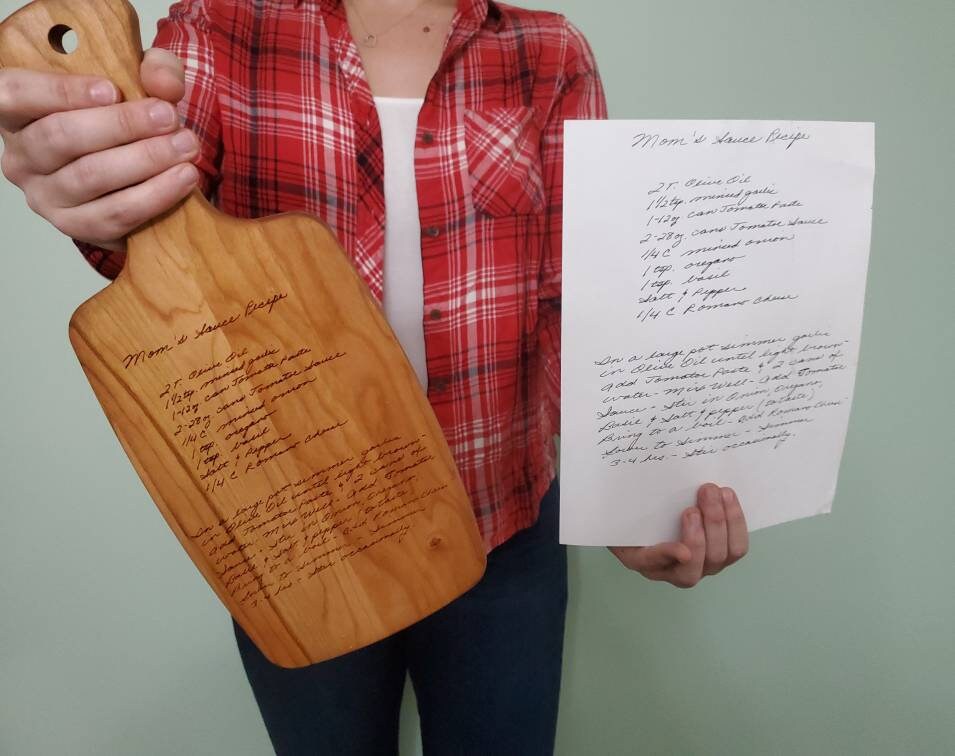 Mom's Sauce Recipe
2T. Olive Oil
1 1/2 tsp. minied garlic
1-12oz can Tomatoe Paste
2-28oz cans Tomatoe Sauce
1/4 C minied onion
1 tsp. oregano
1 tsp. basil
Salt & Pepper
1/4 C Romano Cheese
In a large pot simmer garlic
in Olive Oil until light brown-
add Tomatoe Paste & 2 cans of
water - Mix Well - add Tomatoe
Sauce - Stir in Onion, Oregano,
Basil & Salt & pepper (to taste)
Bring to a boil - add Romano Cheese
Lower to Simmer - Simmer
3-4 hrs. - Stir occasionally.
Mom's Sauce Recipe
2T. Olive Oil
1 1/2 tsp. minied garlic
1-12oz can Tomatoe Paste
2-28oz cans Tomatoe Sauce
1/4 C minied onion
1 tsp. oregano
1 tsp. basil
Salt & Pepper
1/4 C Romano Cheese
In a large pot simmer garlic
in Olive Oil until light brown-
add Tomatoe Paste & 2 cans of
water - Mix Well - add Tomatoe
Sauce - Stir in Onion, Oregano,
Basil & Salt & pepper (to taste)
Bring to a boil - add Romano Cheese
Lower to Simmer - Simmer
3-4 hrs. - Stir occasionally.